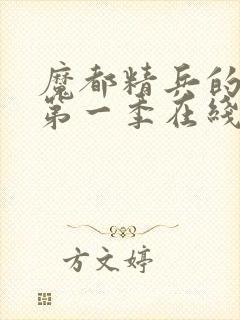 魔都精兵的
第一季在綫
方文婷